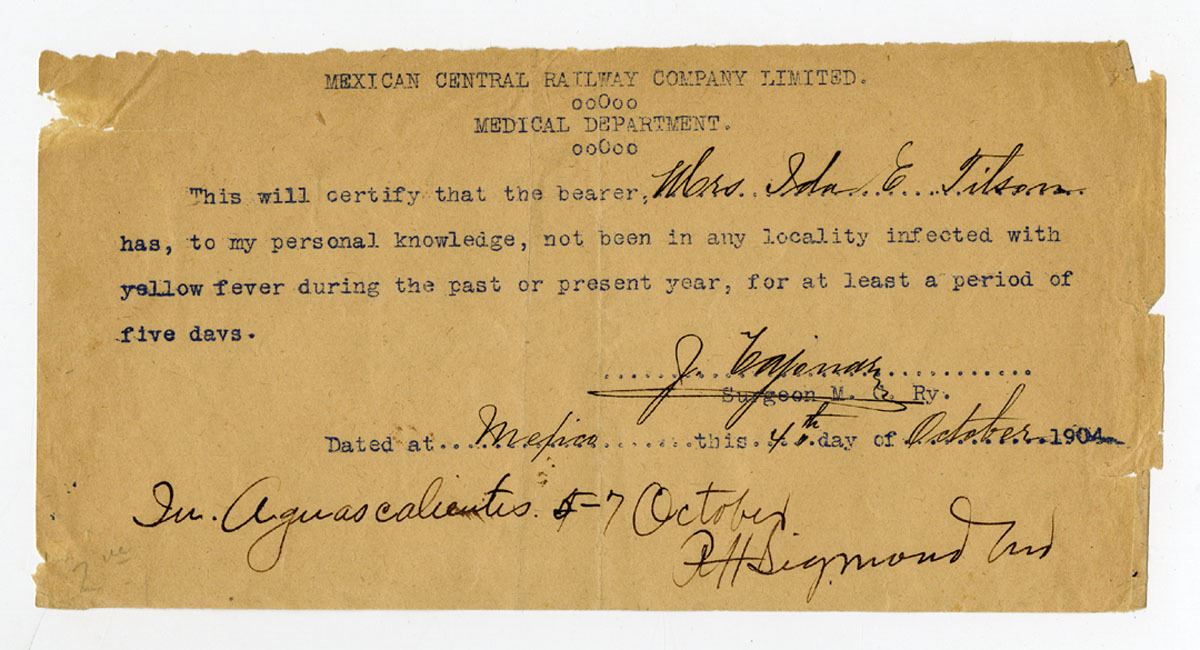 MEXICAN CENTRAL RAILWAY COMPANY LIMITED.
ooOoo
MEDICAL DEPARTMENT.
ooOoo
This will certify that the bearer, Mrs. Ida E. Tilson
has, to my personal knowledge, not been in any locality infected with
yellow fever during the past or present year, for at least a period of
five days.
J.
Surgeon M. C. Ry.
Dated at....Mexico........this.4th.day of October 1904
In Aguascalientes 5-7 October
RH Sigmond MD